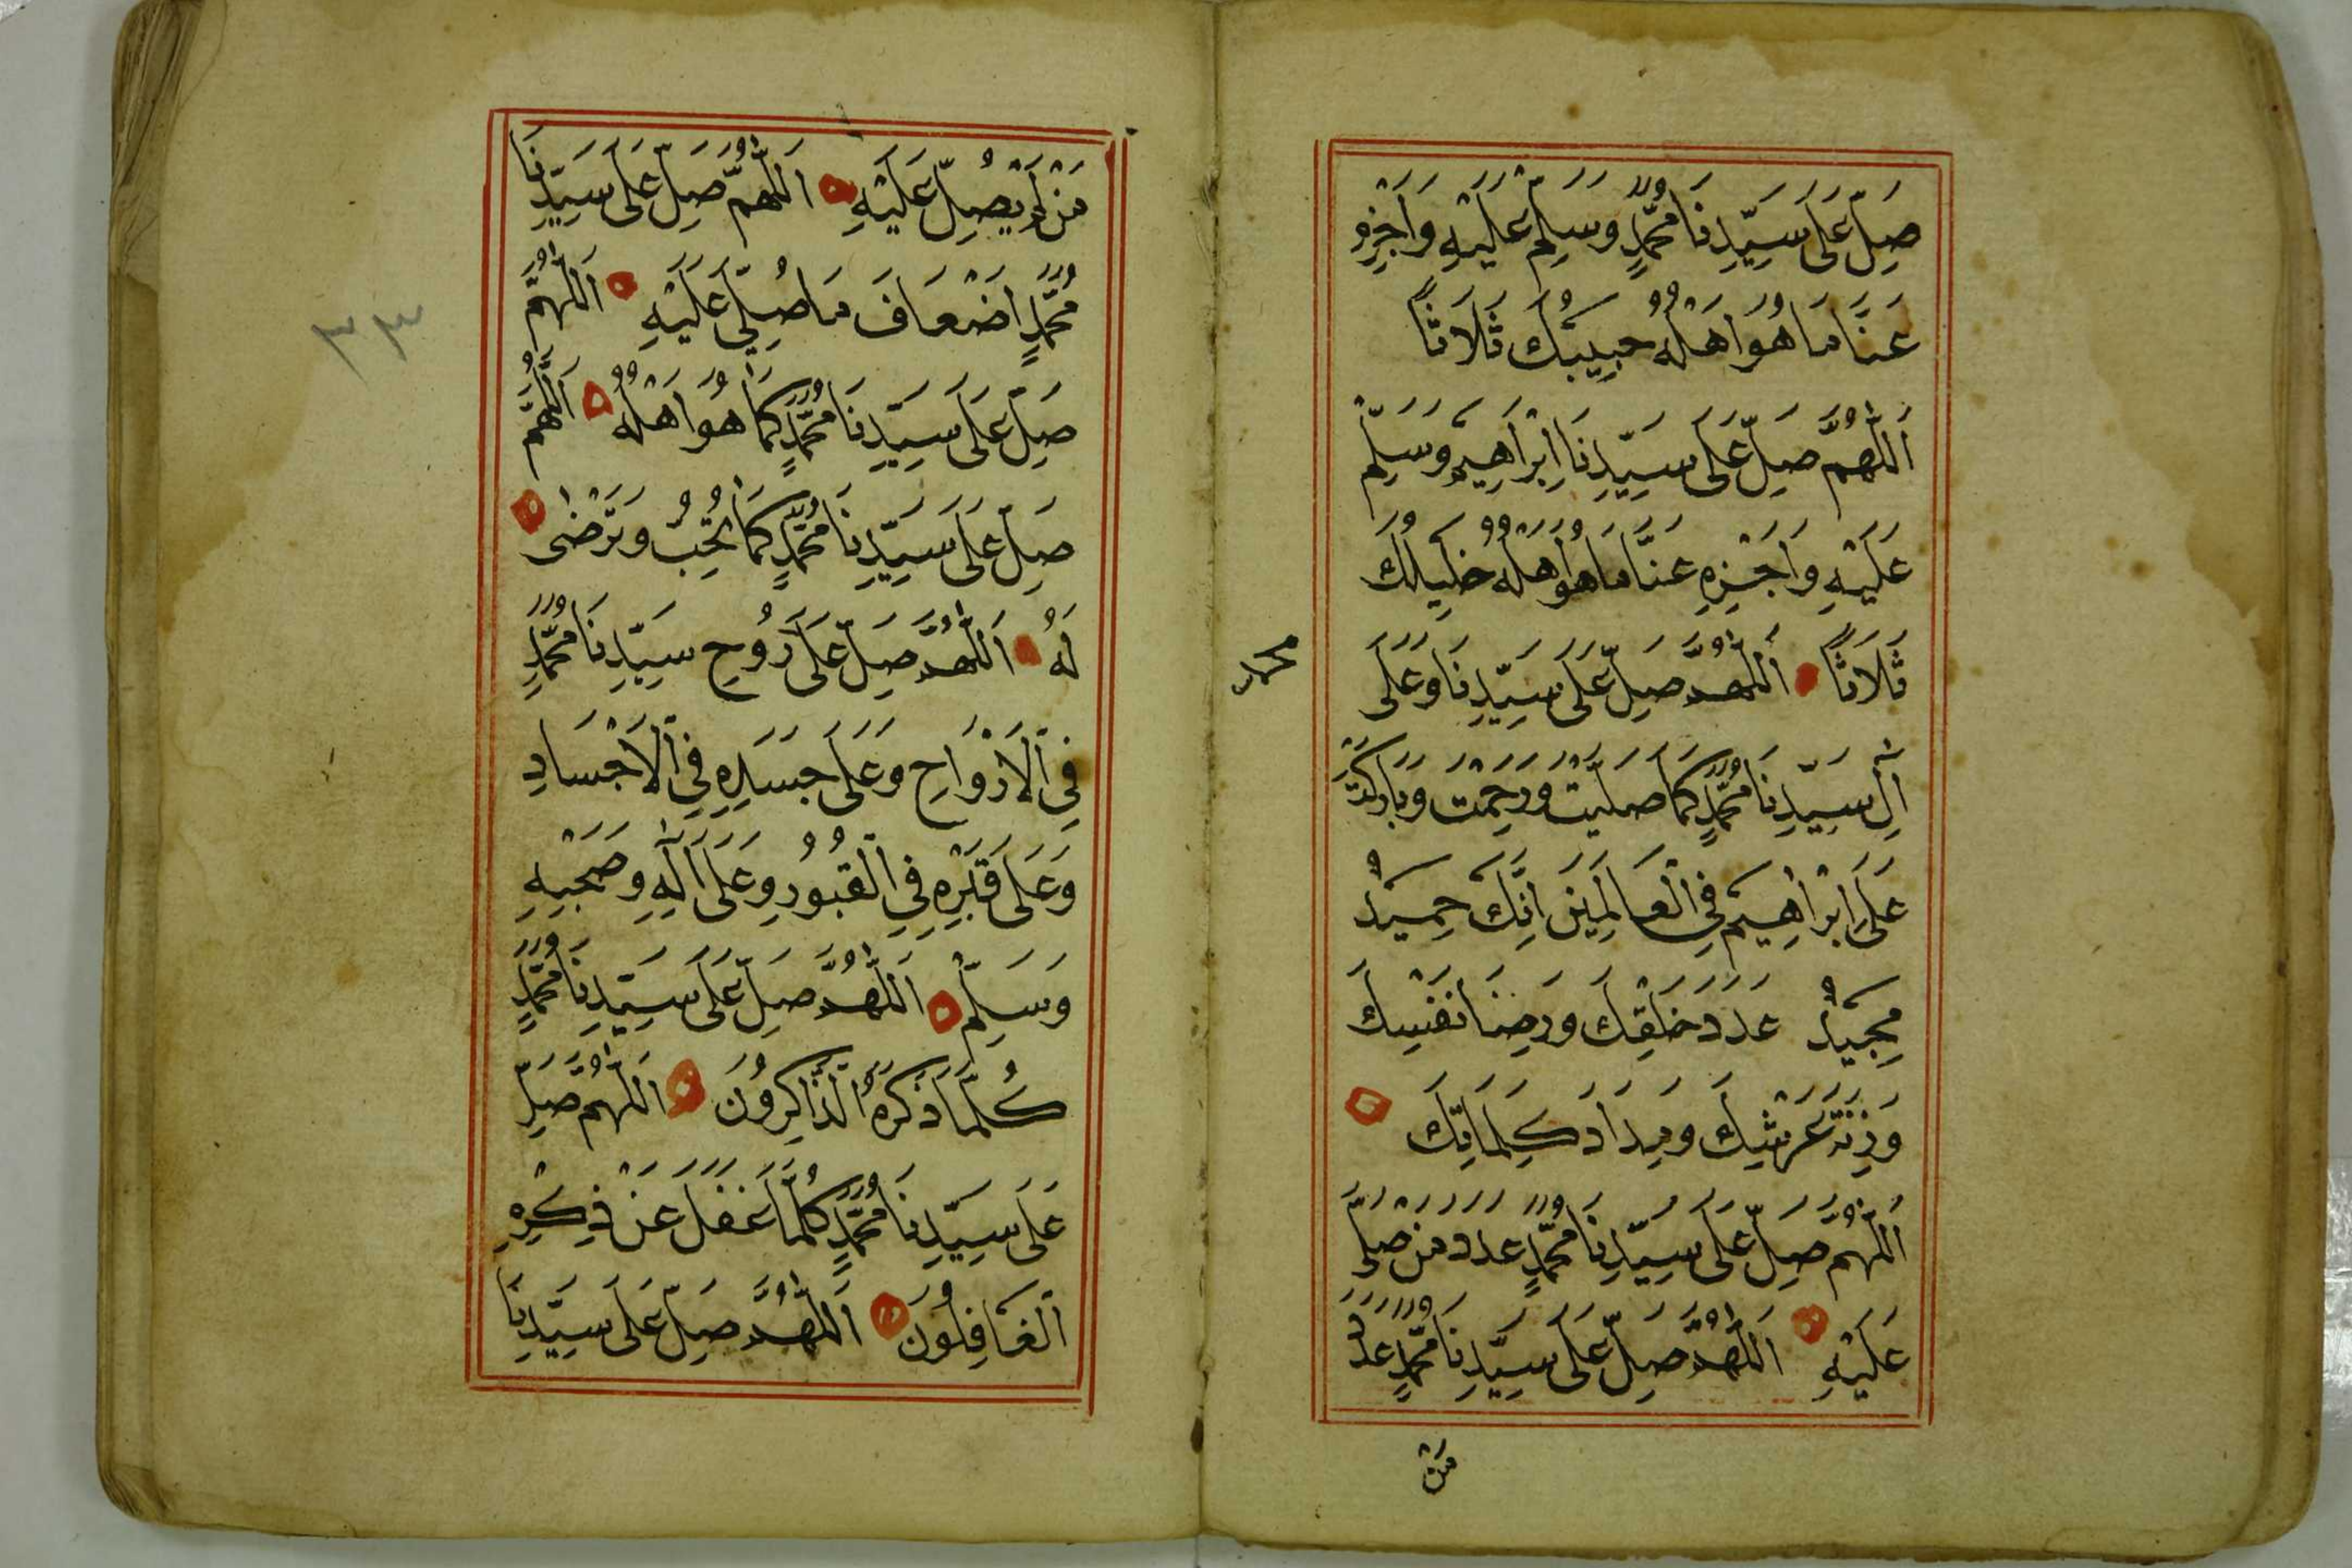 صَلِّ عَلَى سَيِّدِنَا مُحَمَّدٍ وَسَلِّمْ عَلَيْهِ وَاَجْزِهِ
عَنَّا مَا هُوَ اَهْلُهُ حَبِيبُكَ ثَلَاثًا
اَللّٰهُمَّ صَلِّ عَلَى سَيِّدِنَا اِبْرَاهِيمَ وَسَلِّمْ
عَلَيْهِ وَاَجْزِهِ عَنَّا مَا هُوَ اَهْلُهُ خَلِيلُكَ
ثَلَاثًا اَللّٰهُمَّ صَلِّ عَلَى سَيِّدِنَا وَعَلَى
محمد
اٰلِ سَيِّدِنَا مُحَمَّدٍ كَمَا صَلَّيْتَ وَرَحِمْتَ وَبَارَكْتَ
عَلَى اِبْرَاهِيمَ فِي الْعَالَمِينَ اِنَّكَ حَمِيدٌ
مَجِيدٌ عَدَدَ خَلْقِكَ وَرِضَا نَفْسِكَ
وَزِنَةَ عَرْشِكَ وَمِدَادَ كَلِمَاتِكَ
اَللّٰهُمَّ صَلِّ عَلَى سَيِّدِنَا مُحَمَّدٍ عَدَدَ مَنْ صَلَّى
عَلَيْهِ اَللّٰهُمَّ صَلِّ عَلَى سَيِّدِنَا مُحَمَّدٍ عَدَدَ
مَنْ
مَنْ لَمْ يُصَلِّ عَلَيْهِ اَللّٰهُمَّ صَلِّ عَلَى سَيِّدِنَا
مُحَمَّدٍ اَضْعَافَ مَا صُلِّيَ عَلَيْهِ اَللّٰهُمَّ
٣٣
صَلِّ عَلَى سَيِّدِنَا مُحَمَّدٍ كَمَا هُوَ اَهْلُهُ اَللّٰهُمَّ
صَلِّ عَلَى سَيِّدِنَا مُحَمَّدٍ كَمَا تُحِبُّ وَتَرْضٰى
لَهُ اَللّٰهُمَّ صَلِّ عَلَى رُوحِ سَيِّدِنَا مُحَمَّدٍ
فِي الْاَرْوَاحِ وَعَلَى جَسَدِهِ فِي الْاَجْسَادِ
وَعَلَى قَبْرِهِ فِي الْقُبُورِ وَعَلَى اٰلِهِ وَصَحْبِهِ
وَسَلِّمْ اَللّٰهُمَّ صَلِّ عَلَى سَيِّدِنَا مُحَمَّدٍ
كُلَّمَا ذَكَرَهُ الذَّاكِرُونَ اَللّٰهُمَّ صَلِّ
عَلَى سَيِّدِنَا مُحَمَّدٍ كُلَّمَا غَفَلَ عَنْ ذِكْرِهِ
الْغَافِلُونَ اَللّٰهُمَّ صَلِّ عَلَى سَيِّدِنَا